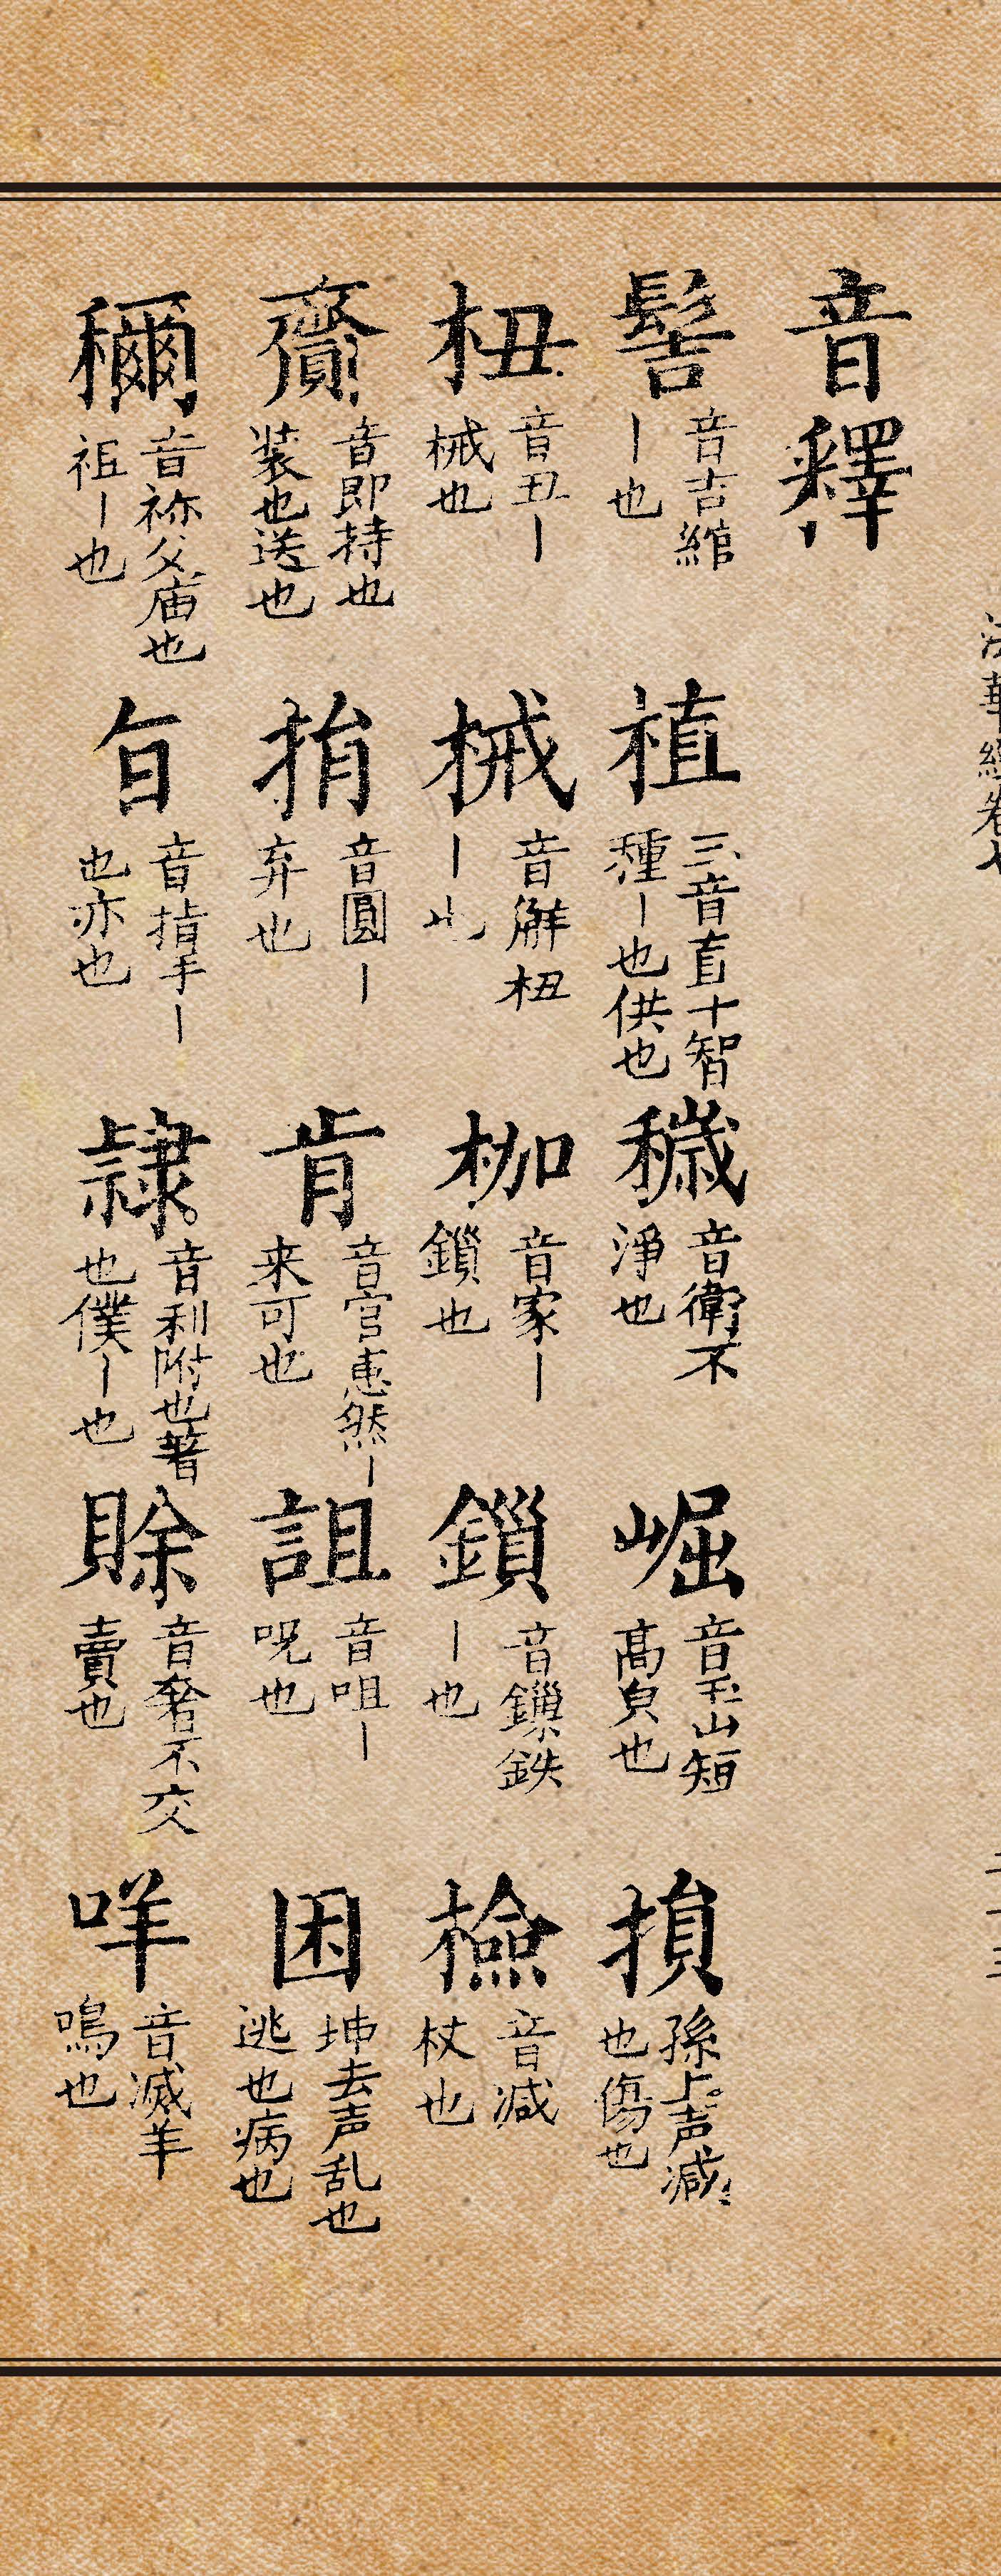 法華經卷七
二十三
音釋
髻 音吉綰丨也
植 三音直十智種丨也供也
穢 音衛不淨也
崛 音玉山短高皃也
損 孫上声减也傷也
杻 音丑丨械也
械 音觧杻丨也
枷 音家丨鎖也
鎻 音鏁鉄丨也
撿 音减杖也
齎 音即持也装也送也
捐 音圓丨弃也
肯 音官惠然丨来可也
詛 音咀丨呪也
困 坤去声乱也逃也病也
禰 音祢父庙也祖丨也
旨 音㨖手丨也亦也
隷 音利附也著也僕丨也
賖 音奢不交賣也
咩 音滅羊鳴也